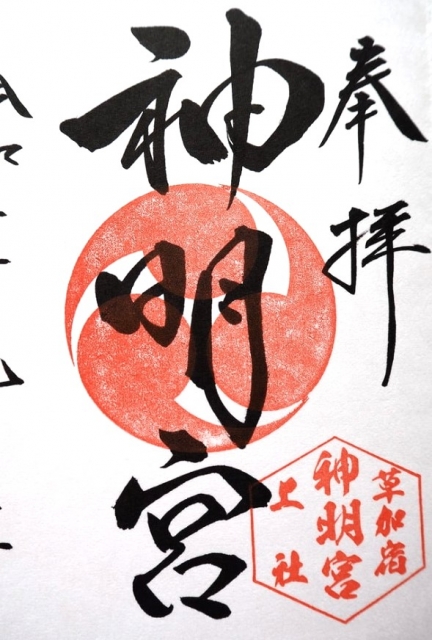 奉拝
神明宮
草加宿
神明宮
上社